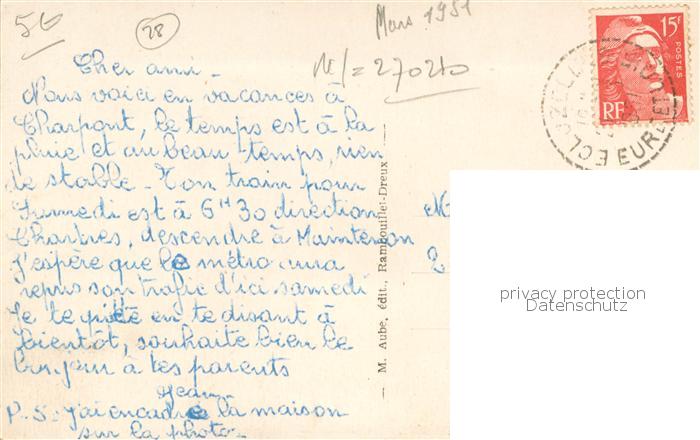 56
28
Mars 1951
N/= 27020
15F
POSTES
RF
ECLUZELLES
EURE ET
Cher ami -
Nous voici en vacances à
Charpont, le temps est à la
pluie et au beau temps, rien
de stable - Ton train pour
Samedi est à 6H30 direction
Chartres, descendre à Maintenon
J'espère que le métro aura
repris son trafic d'ici samedi
Je te en te disant à
bientôt, souhaite bien le
bonjour à tes parents
Jean
P. S. j'ai encadré la maison
sur la photo -
M. Aube, édit., Rambouillet-Dreux
privacy protection
Datenschutz